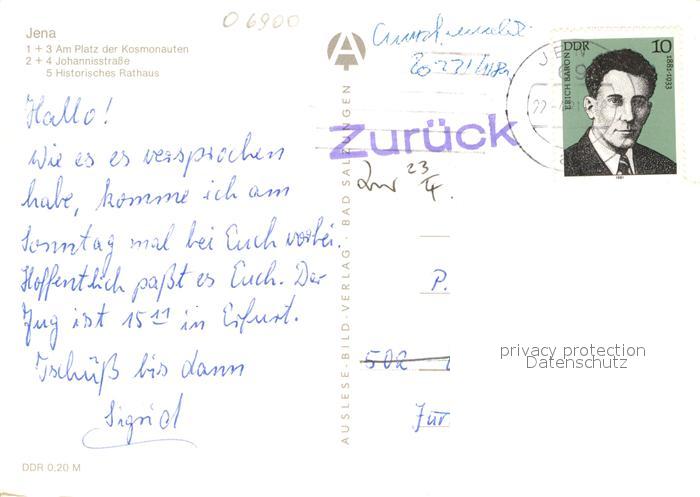 O 6900
Jena
1 + 3 Am Platz der Kosmonauten
2 + 4 Johannisstraße
5 Historisches Rathaus
Hallo!
Wie es es versprochen
habe, komme ich am
Sonntag mal bei Euch vorbei.
Hoffentlich paßt es Euch. Der
Zug ist 15 11 in Erfurt.
Tschüß bis dann
Sigrid
DDR 0,20 M
AUSLESE-BILD-VERLAG · BAD SALZUNGEN
A
zurück
23
4.
P.
502
DDR
10
ERICH BARON
1881-1933
1981
JEN
69
22.
privacy protection
Datenschutz